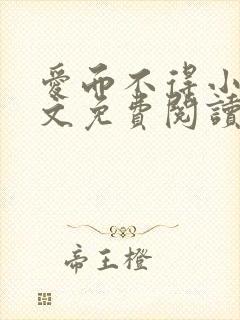 愛而不得小
文免費閱讀
帝王橙